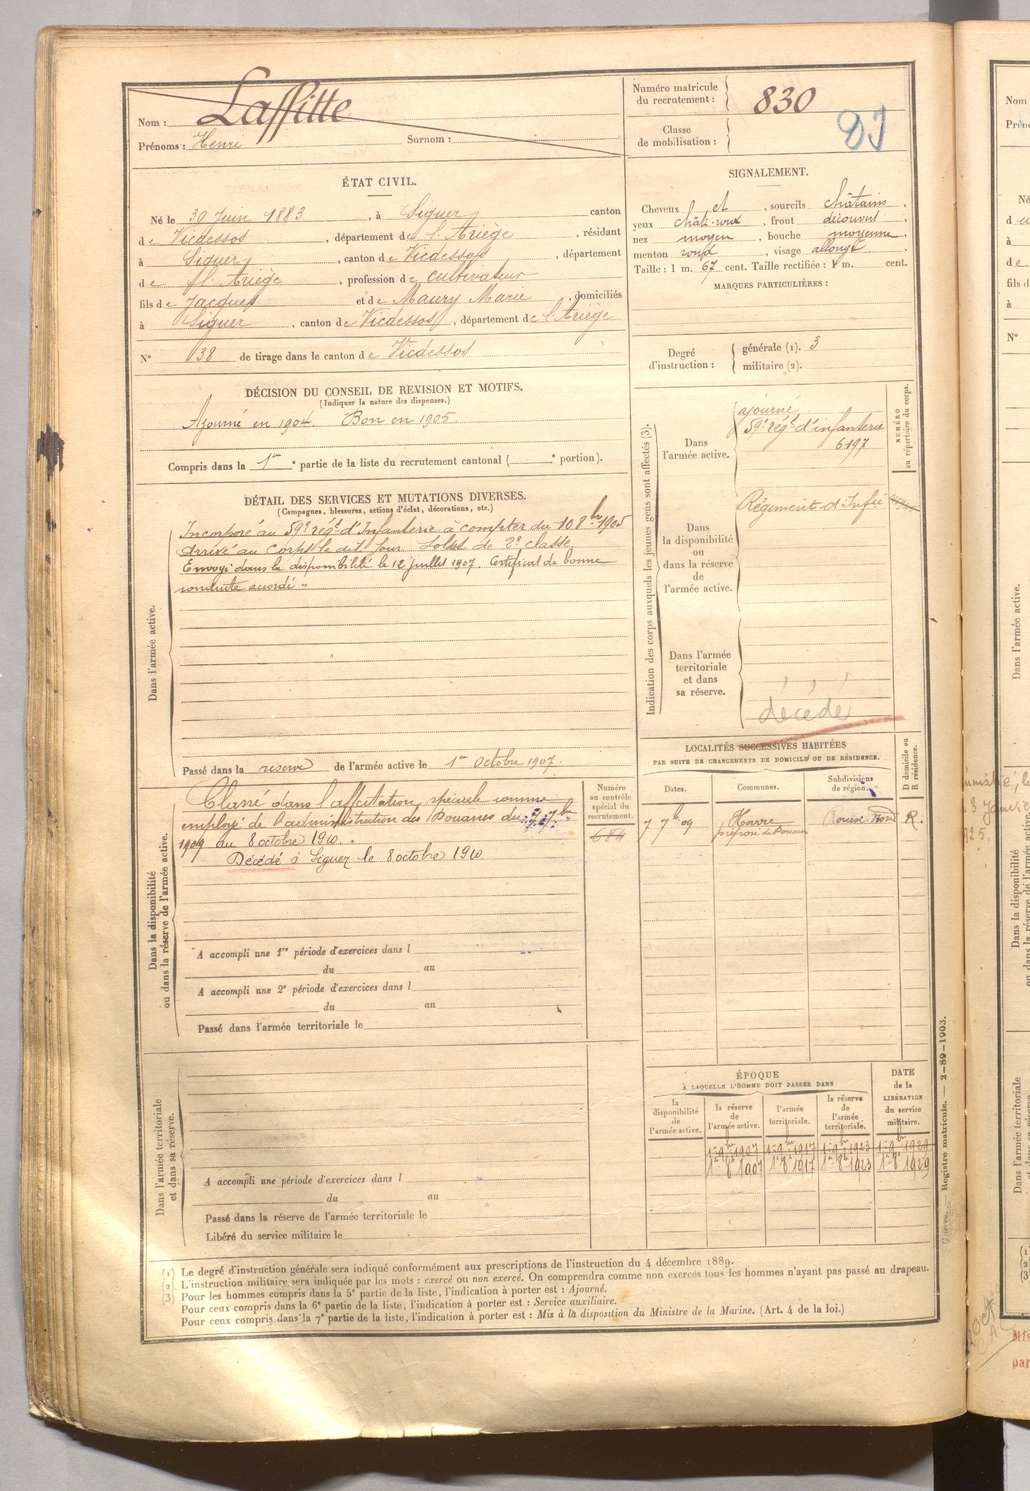 Nom : Laffitte
Prénoms : Henri Surnom :
Numéro matricule du recrutement : 830
Classe de mobilisation :
ÉTAT CIVIL.
Né le 30 Juin 1883, à Siguer, canton
de Vicdessos, département de l'Ariège, résidant
à Siguer, canton de Vicdessos, département
de l'Ariège, profession de cultivateur
fils de Jacques et de Maury Marie, domiciliés
à Siguer, canton de Vicdessos, département de l'Ariège
N° 38 de tirage dans le canton de Vicdessos
SIGNALEMENT.
Cheveux et, sourcils châtains,
yeux chât-roux, front découvert,
nez moyen, bouche moyenne,
menton rond, visage allongé
Taille : 1 m. 67 cent. Taille rectifiée : 1 m. cent.
MARQUES PARTICULIÈRES :
Degré d'instruction : générale (1). 3
militaire (2).
DÉCISION DU CONSEIL DE REVISION ET MOTIFS.
(Indiquer la nature des dispenses.)
Ajourné en 1904. Bon en 1905
Compris dans la 1re partie de la liste du recrutement cantonal ( e portion).
DÉTAIL DES SERVICES ET MUTATIONS DIVERSES.
(Campagnes, blessures, actions d'éclat, décorations, etc.)
Dans l'armée active.
Incorporé au 59e régt d'Infanterie à compter du 10 8bre 1905
Arrivé au corps le dit jour. Soldat de 2e classe.
Envoyé dans la disponibilité le 12 juillet 1907. Certificat de bonne
conduite accordé.
Passé dans la réserve de l'armée active le 1er Octobre 1907.
Indication des corps auxquels les jeunes gens sont affectés (3).
NUMÉRO au répertoire du corps.
Dans l'armée active.
ajourné
59e régt d'infanterie
6197
Dans la disponibilité ou dans la réserve de l'armée active.
Régiments d'Infie
Dans l'armée territoriale et dans sa réserve.
décédé
Dans la disponibilité ou dans la réserve de l'armée active.
Classé dans l'affectation spéciale comme
employé de l'administration des Douanes du 7 7bre
1909 au 8 octobre 1910.
Décédé à Siguer le 8 octobre 1910
Numéro au contrôle spécial du recrutement.
684
A accompli une 1re période d'exercices dans l
du au
A accompli une 2e période d'exercices dans l
du au
Passé dans l'armée territoriale le
LOCALITÉS SUCCESSIVES HABITÉES
PAR SUITE DE CHANGEMENTS DE DOMICILE OU DE RÉSIDENCE.
Dates. Communes. Subdivisions de région. D domicile ou R résidence.
7 7b 09 Havre Rouen Nord R.
préposé des Douanes
Dans l'armée territoriale et dans sa réserve.
A accompli une période d'exercices dans l
du au
Passé dans la réserve de l'armée territoriale le
Libéré du service militaire le
ÉPOQUE
À LAQUELLE L'HOMME DOIT PASSER DANS
DATE de la LIBÉRATION du service militaire.
la disponibilité de l'armée active. la réserve de l'armée active. l'armée territoriale. la réserve de l'armée territoriale.
1er 8b 1907 1er 8b 1917 1er 8b 1923 1er 8b 1929
(1) Le degré d'instruction générale sera indiqué conformément aux prescriptions de l'instruction du 4 décembre 1889.
(2) L'instruction militaire sera indiquée par les mots : exercé ou non exercé. On comprendra comme non exercés tous les hommes n'ayant pas passé au drapeau.
(3) Pour les hommes compris dans la 5e partie de la liste, l'indication à porter est : Ajourné.
Pour ceux compris dans la 6e partie de la liste, l'indication à porter est : Service auxiliaire.
Pour ceux compris dans la 7e partie de la liste, l'indication à porter est : Mis à la disposition du Ministre de la Marine. (Art. 4 de la loi.)
Registre matricule. — 2-89-1903.